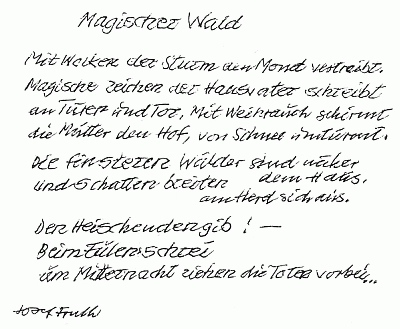 Magischer Wald
Mit Wolken der Sturm den Mond vertreibt.
Magische Zeichen der Hausvater schreibt
an Türen und Tor, Mit Weihrauch schirmt
die Mutter den Hof, von Schnee umtürmt.
Die finsteren Wälder sind näher
dem Haus.
und Schatten breiten
am Herd sich aus.
Den Heischenden gib! —
Beim Eulenschrei
um Mitternacht ziehen die Toten vorbei...
Josef Fruth